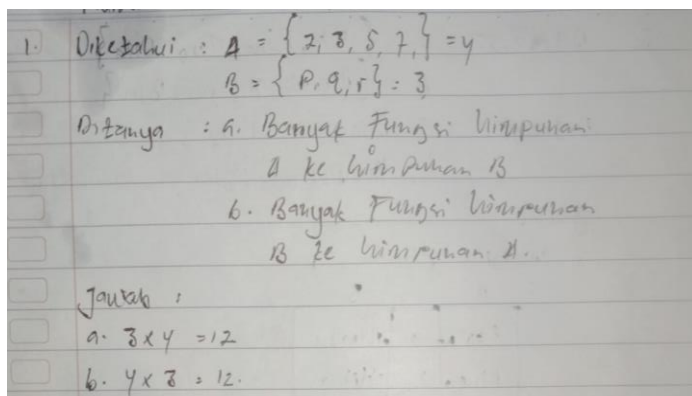 1. Diketahui : A = {2, 3, 5, 7,} = 4
B = {P, q, r} = 3
Ditanya : a. Banyak Fungsi himpunan
A ke himpunan B
b. Banyak Fungsi himpunan
B ke himpunan A.
Jawab :
a. 3 x 4 = 12
b. 4 x 3 = 12.